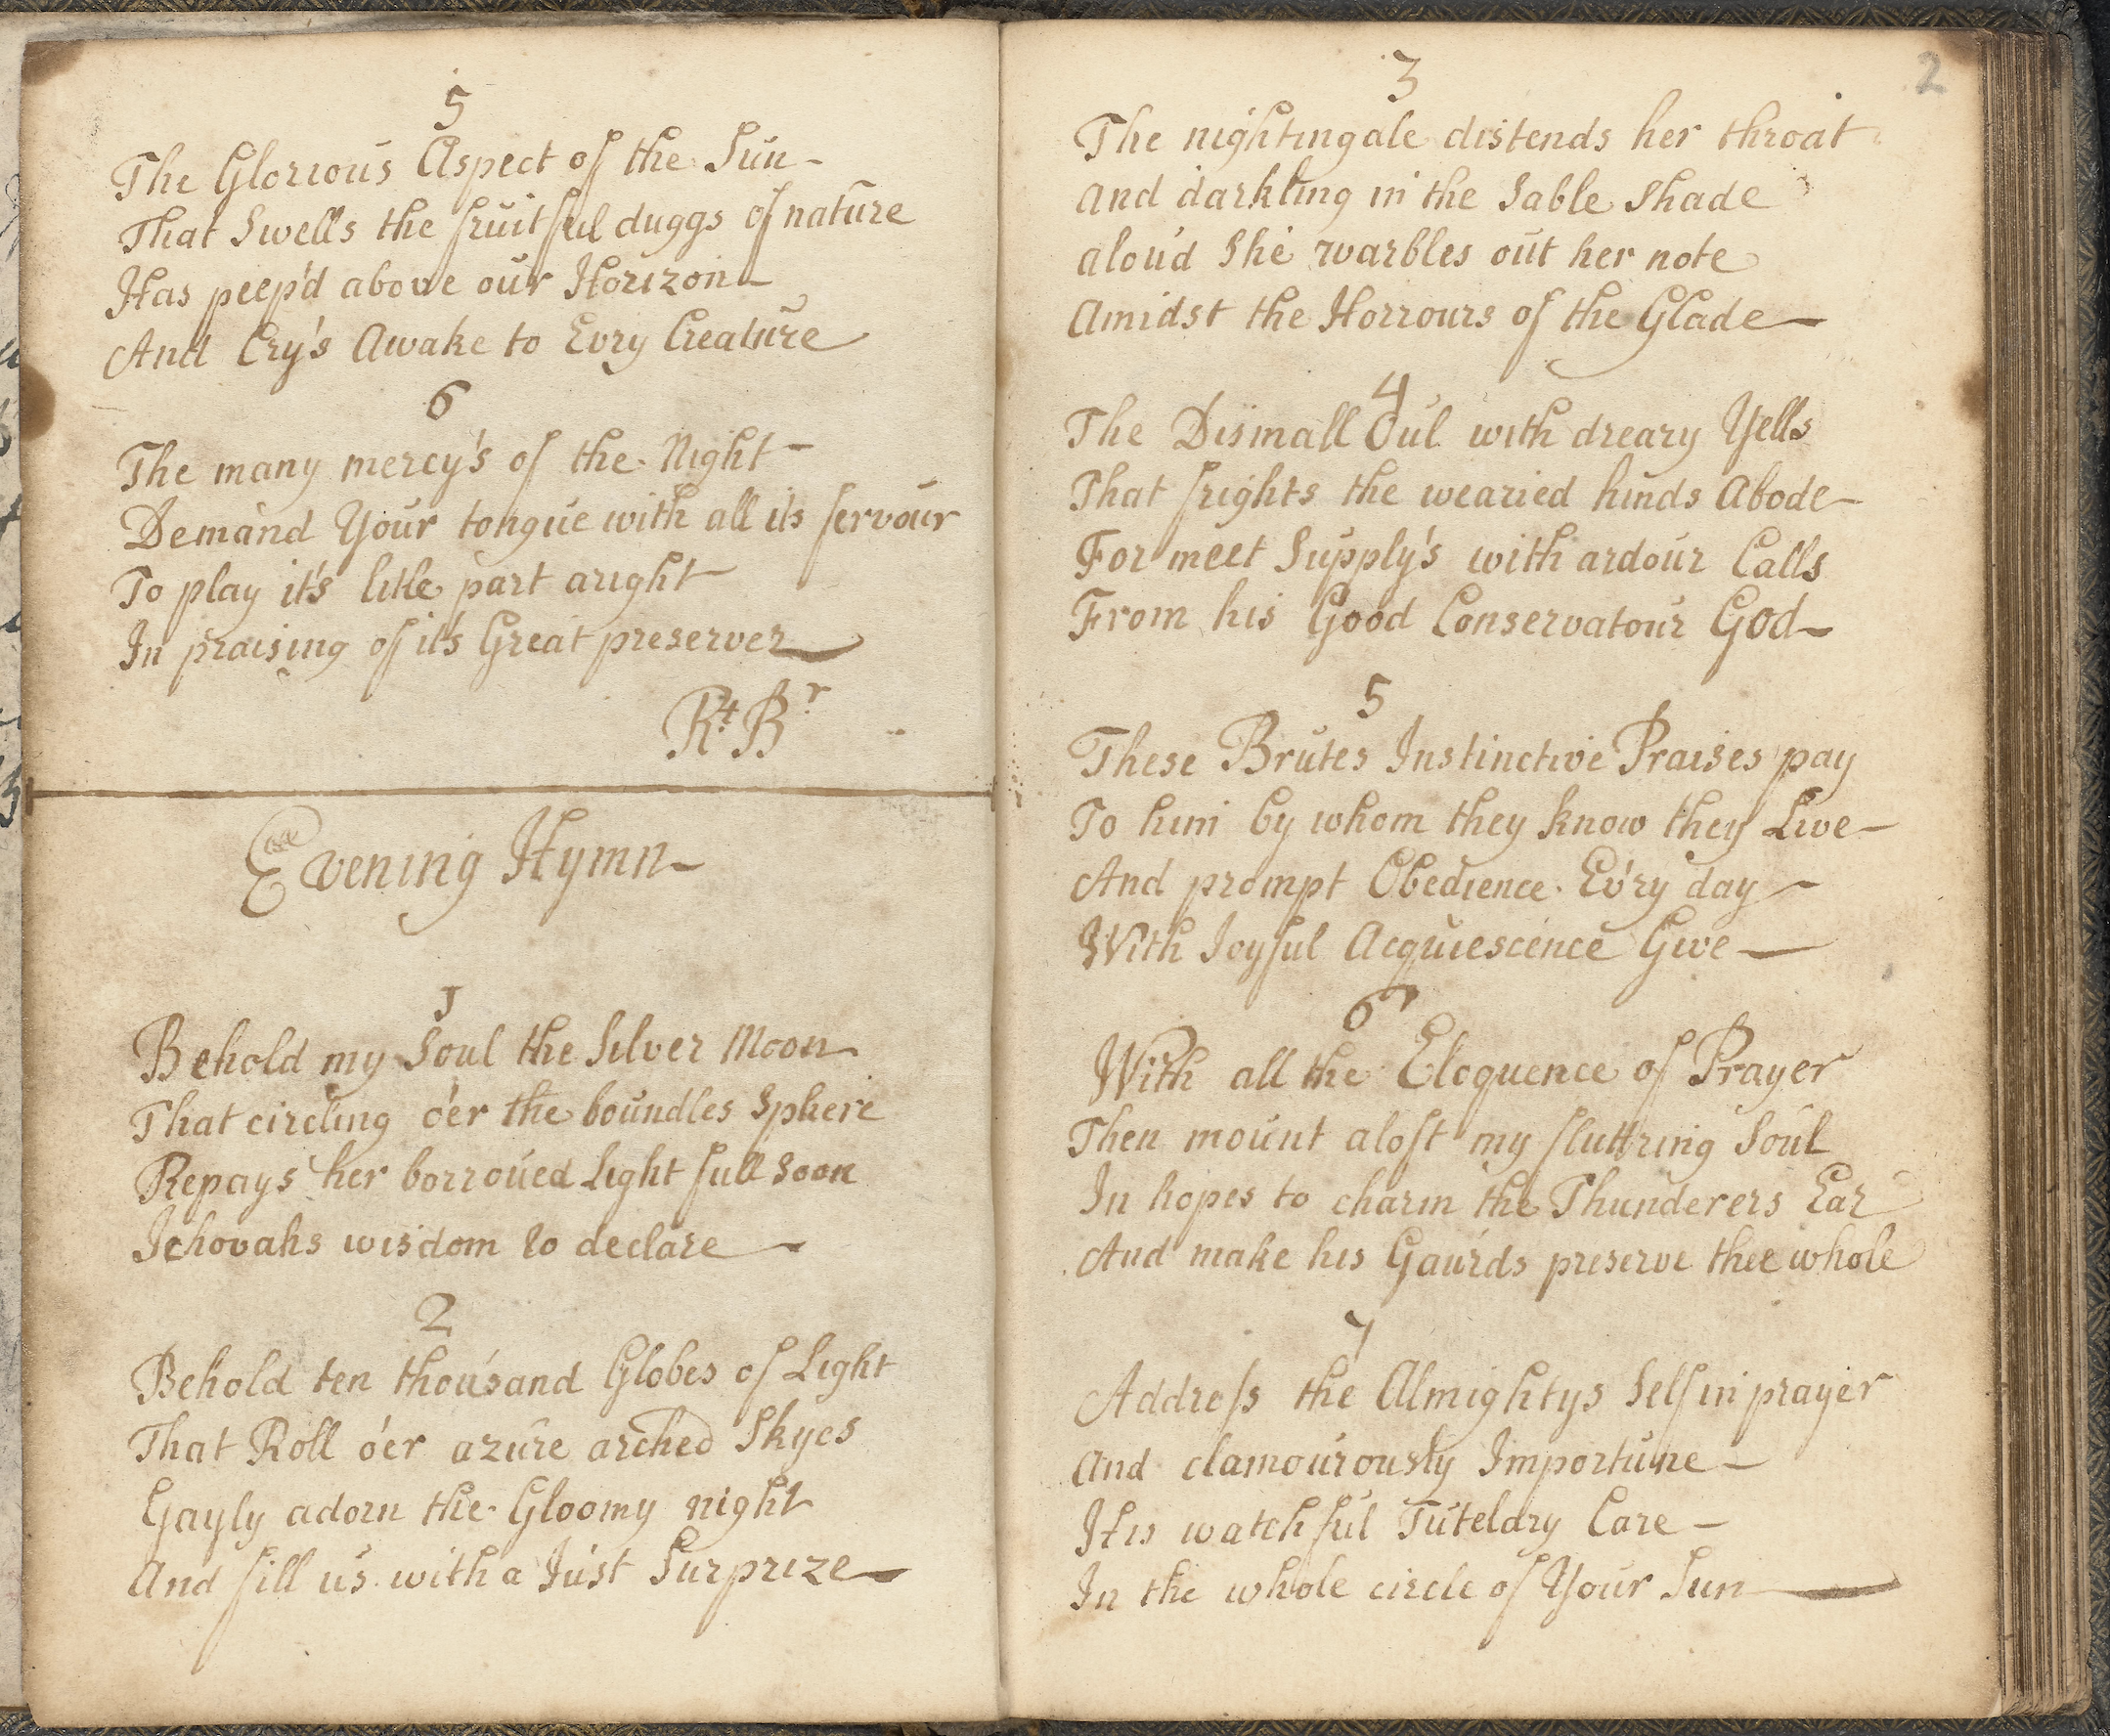 5
The Glorious Aspect of the Sun-
That Swells the fruitful duggs of nature
Has peep'd above our Horizon-
And Cry's Awake to Evry Creature
6
The many mercy's of the Night-
Demand Your tongue with all its fervour
To play it's litle part aright
In praising of it's Great preserver
Rt. Br.
Evening Hymn-
1
Behold my Soul the Silver Moon
That circling o'er the boundles Sphere
Repays her borroued Light full Soon
Jehovahs wisdom to declare-
2
Behold ten thousand Globes of Light
That Roll o'er azure arched Skyes
Gayly adorn the Gloomy night
And fill us with a Just Surprize-
2
3
The nightingale distends her throat
And darkling in the Sable Shade
aloud She warbles out her note
Amidst the Horrours of the Glade-
4
The Dismall Oul with dreary Yells
That frights the wearied hinds Abode-
For meet Supply's with ardour Calls
From his Good Conservatour God-
5
These Brutes Instinctive Praises pay
To him by whom they know they Live-
And prompt Obedience Ev'ry day-
With Joyful Acquiescence Give-
6
With all the Eloquence of Prayer
Then mount aloft my fluttring Soul
In hopes to charm the Thunderers Ear
And make his Gaurds preserve thee whole
7
Addreſs the Almightys Self in prayer
And clamourously Importune-
His watchful Tutelary Care-
In the whole circle of Your Sun-